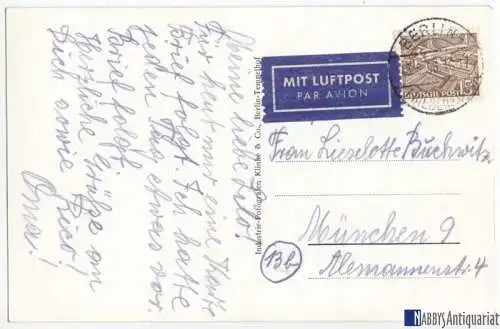 Meine liebe Lilo!
Für heut nur eine Karte
Brief folgt. Ich hatte
jeden Tag etwas vor.
Brief folgt.
Herzliche Grüße an
Dich sowie Rico!
Oma!
Industrie-Fotografen Klinke & Co., Berlin-Tempelhof
MIT LUFTPOST
PAR AVION
BERLIN
15
DEUTSCHE POST
Frau Lieselotte Buchwitz
München 9
13b
Alemannenstr. 4
NABBYS Antiquariat